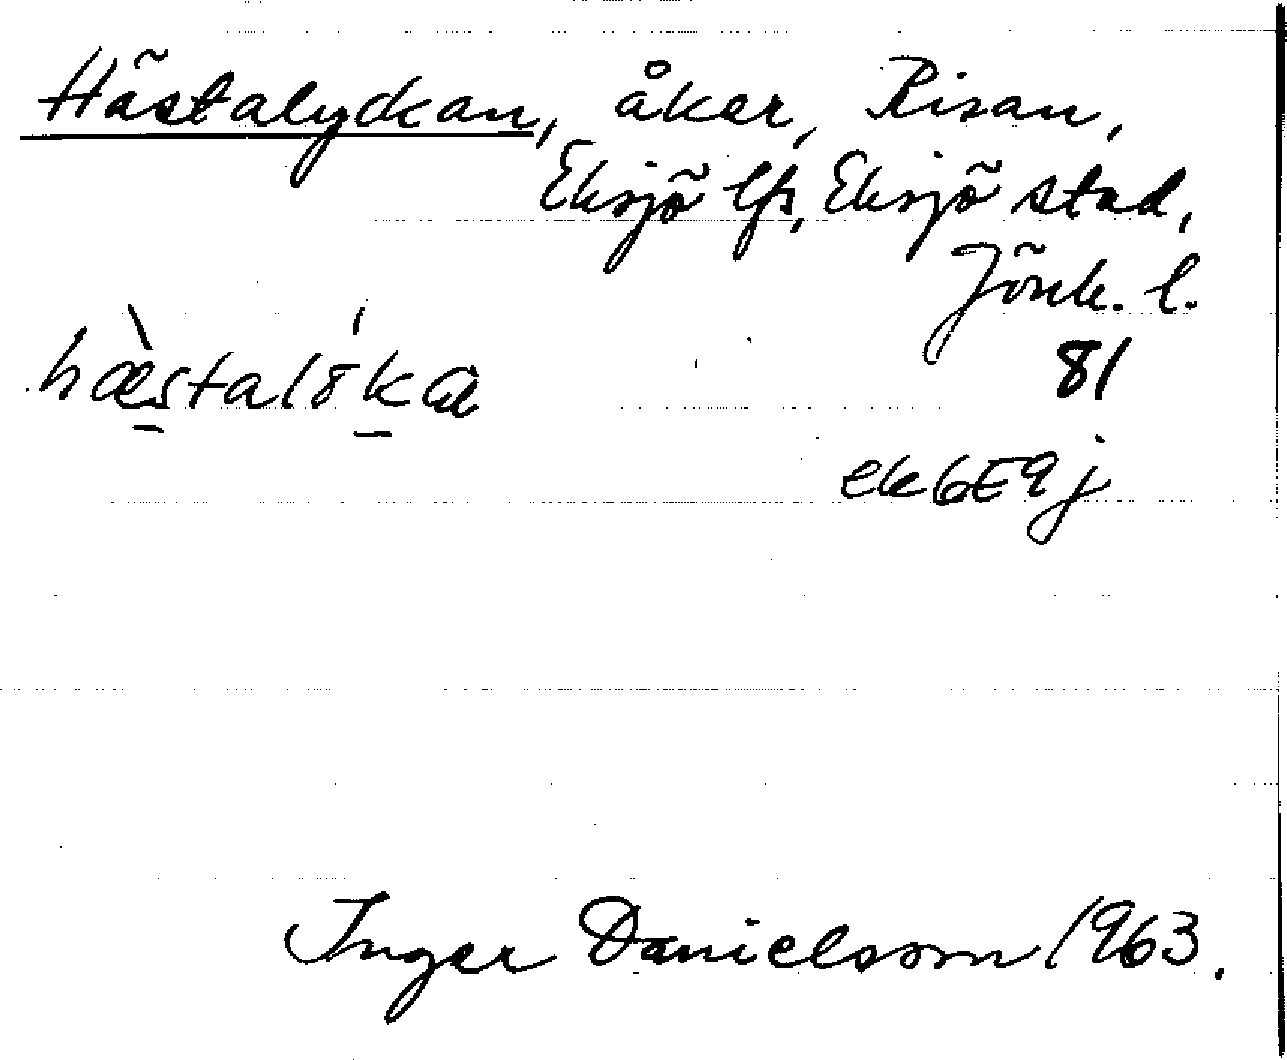 Hästalyckan, åker, Risan,
Eksjö lfs, Eksjö stad,
Jönk. l.
hæ̀stalö́ka
81
ek6E9j
Inger Danielsson 1963.